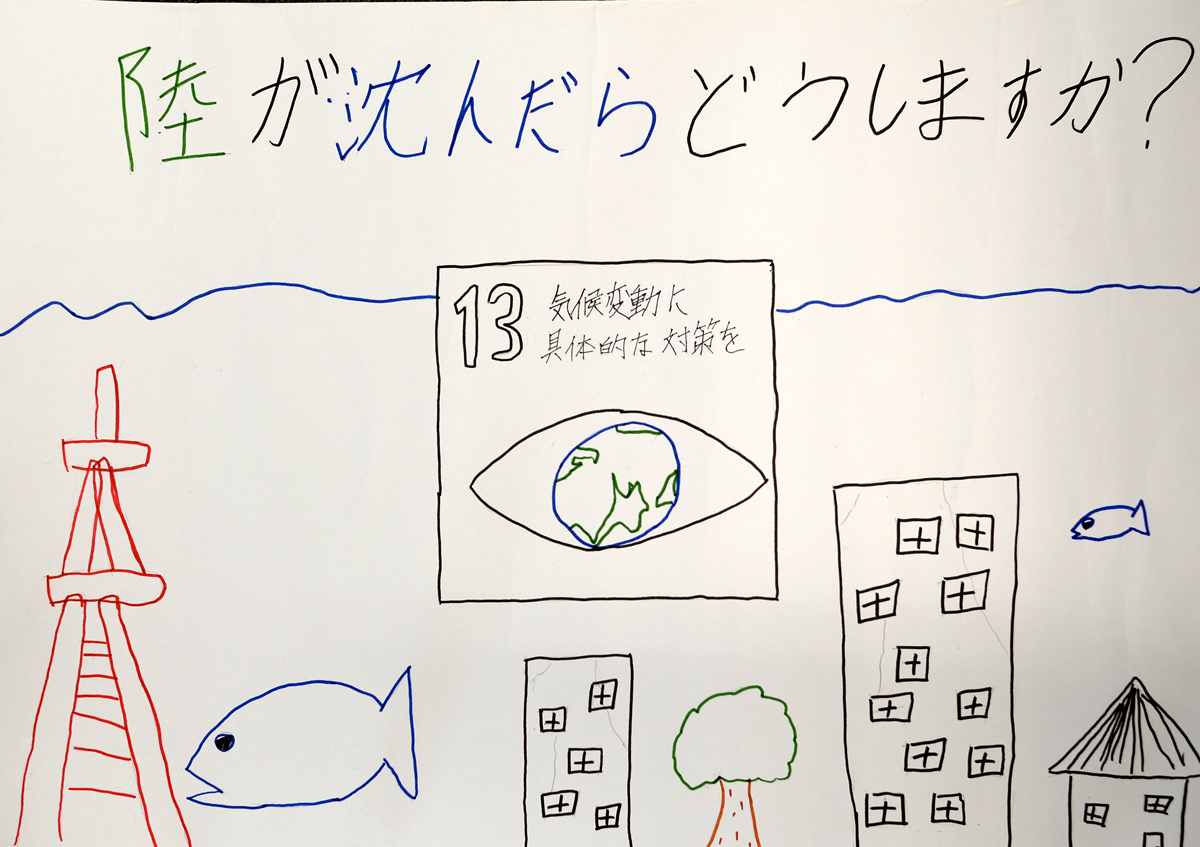 陸が沈んだらどうしますか?
13 気候変動に
具体的な対策を